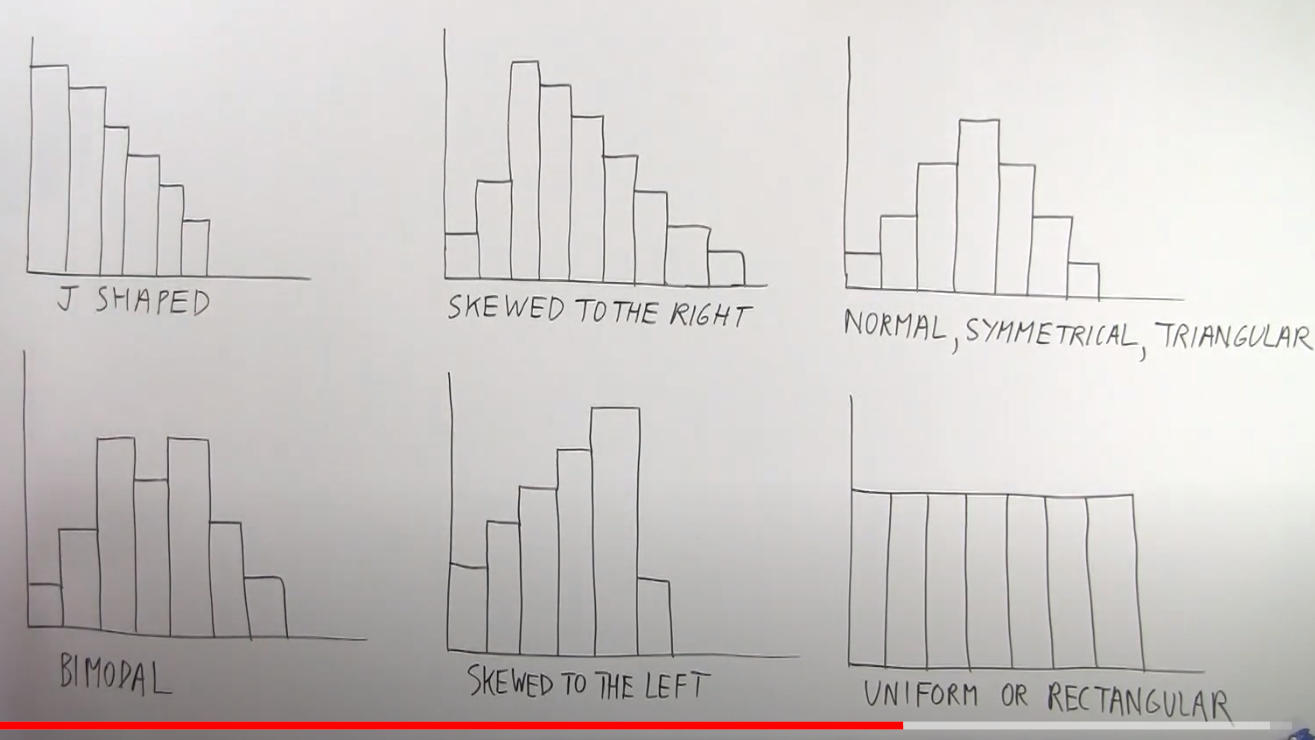 J SHAPED
SKEWED TO THE RIGHT
NORMAL, SYMMETRICAL, TRIANGULAR
BIMODAL
SKEWED TO THE LEFT
UNIFORM OR RECTANGULAR